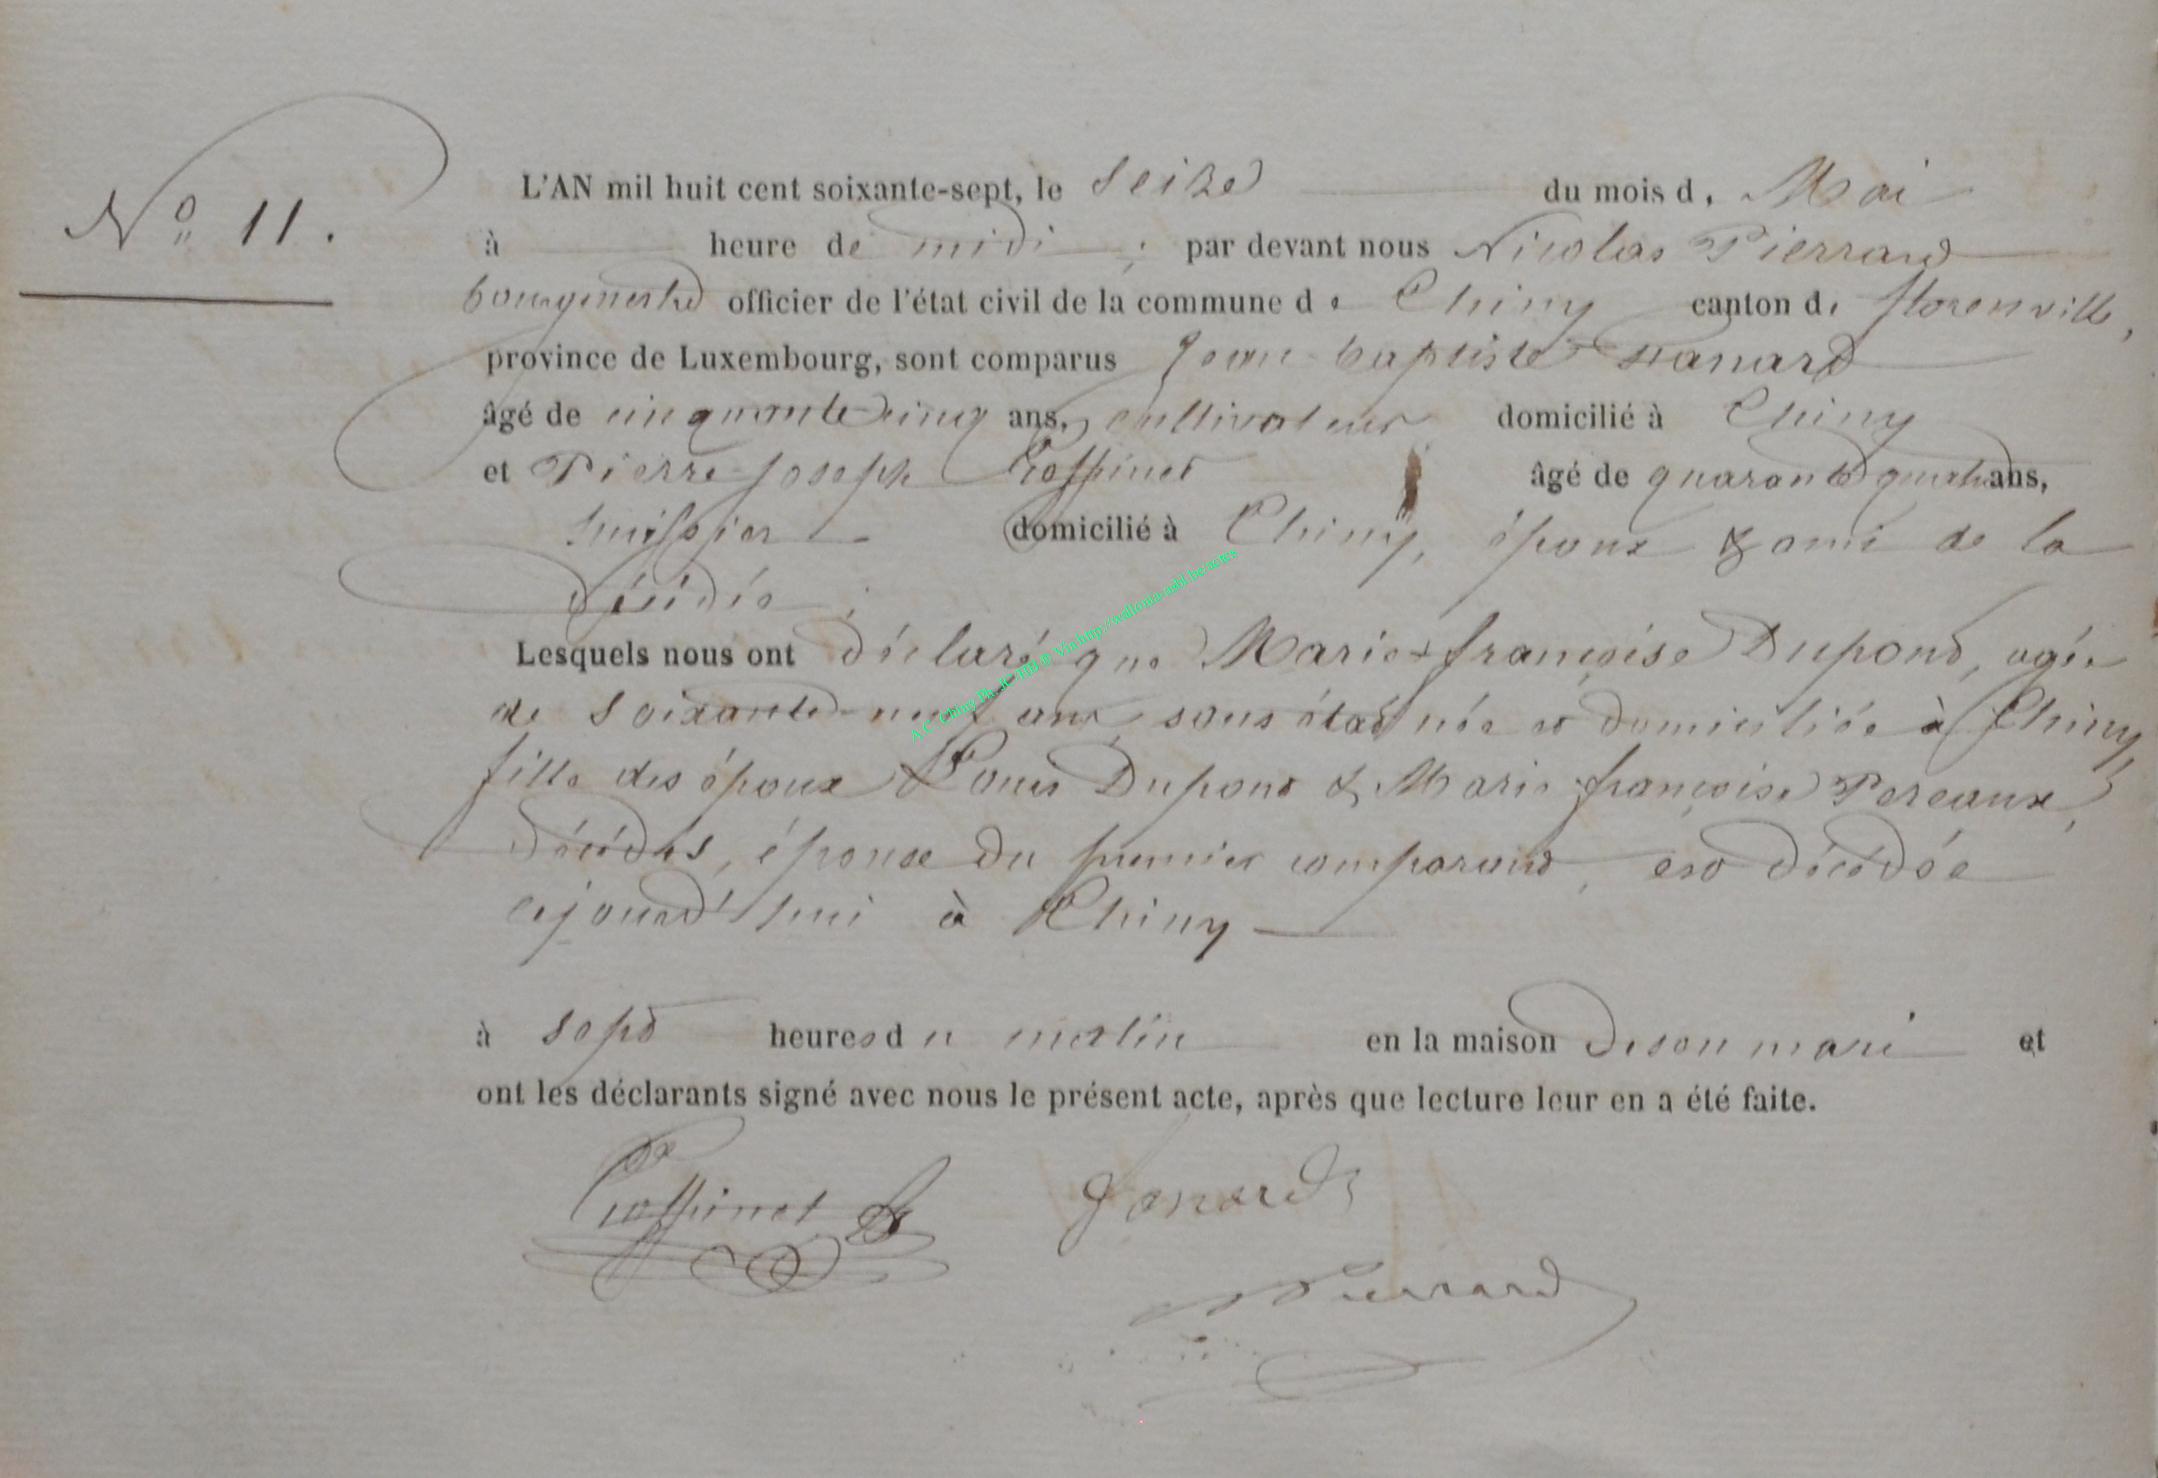 N° 11.
L'AN mil huit cent soixante-sept, le seize du mois de Mai
à heure de midi ; par devant nous Nicolas Pierrard
bourgmestre officier de l'état civil de la commune de Chiny canton de florenville,
province de Luxembourg, sont comparus Jean-baptiste
âgé de cinquante cinq ans, cultivateur domicilié à Chiny
et Pierre-Joseph âgé de quarante quatre ans,
huissier domicilié à Chiny, époux & ami de la
décédée ;
Lesquels nous ont déclaré que Marie-françoise Dupond, agée
de soixante-neuf ans, sans état née et domiciliée à Chiny,
fille des époux Louis Dupond & Marie françoise Pereaux,
décédés, épouse du premier comparant, est décédée
cejourd'hui à Chiny
à sept heures du matin en la maison de son mari et
ont les déclarants signé avec nous le présent acte, après que lecture leur en a été faite.
Pierrard
A.C. Chiny Ph. via http://wallonia-asbl.be/actes